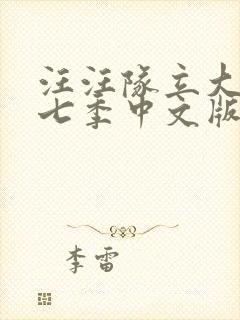 汪汪队立大
七季中文版
李雷